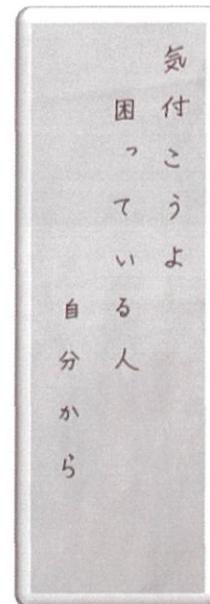 気付こうよ
困っている人
自分から